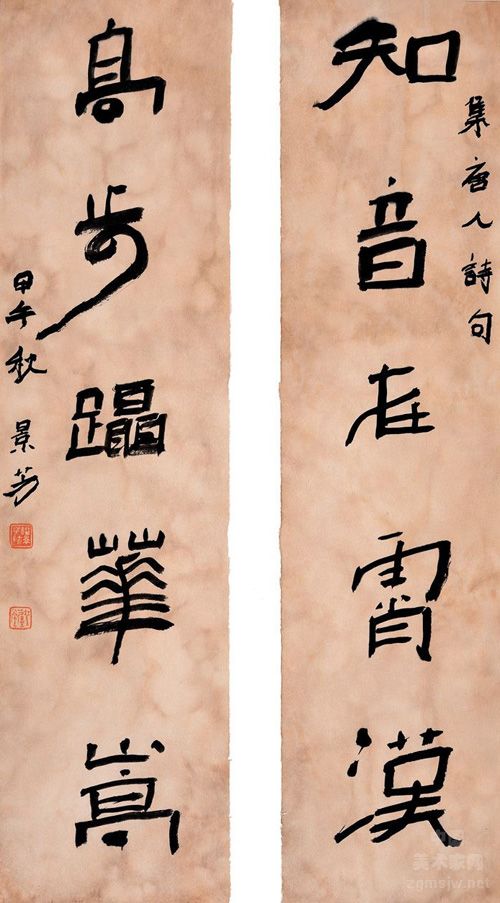 知音在霄漢
集唐人詩句
高步躡華嵩
甲午秋 景芳
美术家网
zgmsjw.net